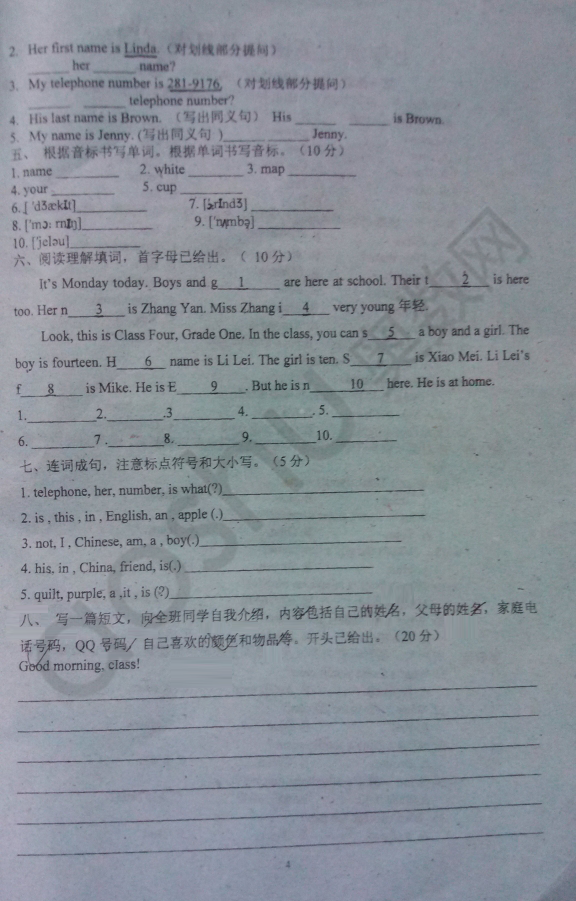 2. Her first name is Linda.（对划线部分提问）
______ her ______ name?
3. My telephone number is 281-9176. （对划线部分提问）
______ ______ telephone number?
4. His last name is Brown. （写出同义句） His ______ ______ is Brown.
5. My name is Jenny. (写出同义句 )______ ______ Jenny.
五、 根据音标书写单词。根据单词书写音标。（10 分）
1. name ________ 2. white ________ 3. map ________
4. your ________ 5. cup ________
6. [ 'dʒækIt]________ 7. [ɔ:rIndʒ]________
8. ['mɔ: rnIŋ]________ 9. ['nʌmbə] ________
10. ['jeləu]________
六、阅读理解填词，首字母已给出。（ 10 分）
It's Monday today. Boys and g___1___ are here at school. Their t___2___ is here
too. Her n___3___ is Zhang Yan. Miss Zhang i___4___ very young 年轻.
Look, this is Class Four, Grade One. In the class, you can s___5___ a boy and a girl. The
boy is fourteen. H___6___ name is Li Lei. The girl is ten. S___7___ is Xiao Mei. Li Lei's
f___8___ is Mike. He is E___9___. But he is n___10___ here. He is at home.
1.________2.________.3________4. ________. 5. ________
6. ________7 .________8. ________9. ________10. ________
七、连词成句，注意标点符号和大小写。（5 分）
1. telephone, her, number, is what(?)________
2. is , this , in , English, an , apple (.)________
3. not, I , Chinese, am, a , boy(.)________
4. his, in , China, friend, is(.) ________
5. quilt, purple, a ,it , is (?)________
八、 写一篇短文，向全班同学自我介绍，内容包括自己的姓名，父母的姓名，家庭电
话号码，QQ 号码，自己喜欢的颜色和物品等。开头已给出。（20 分）
Good morning, class!
4